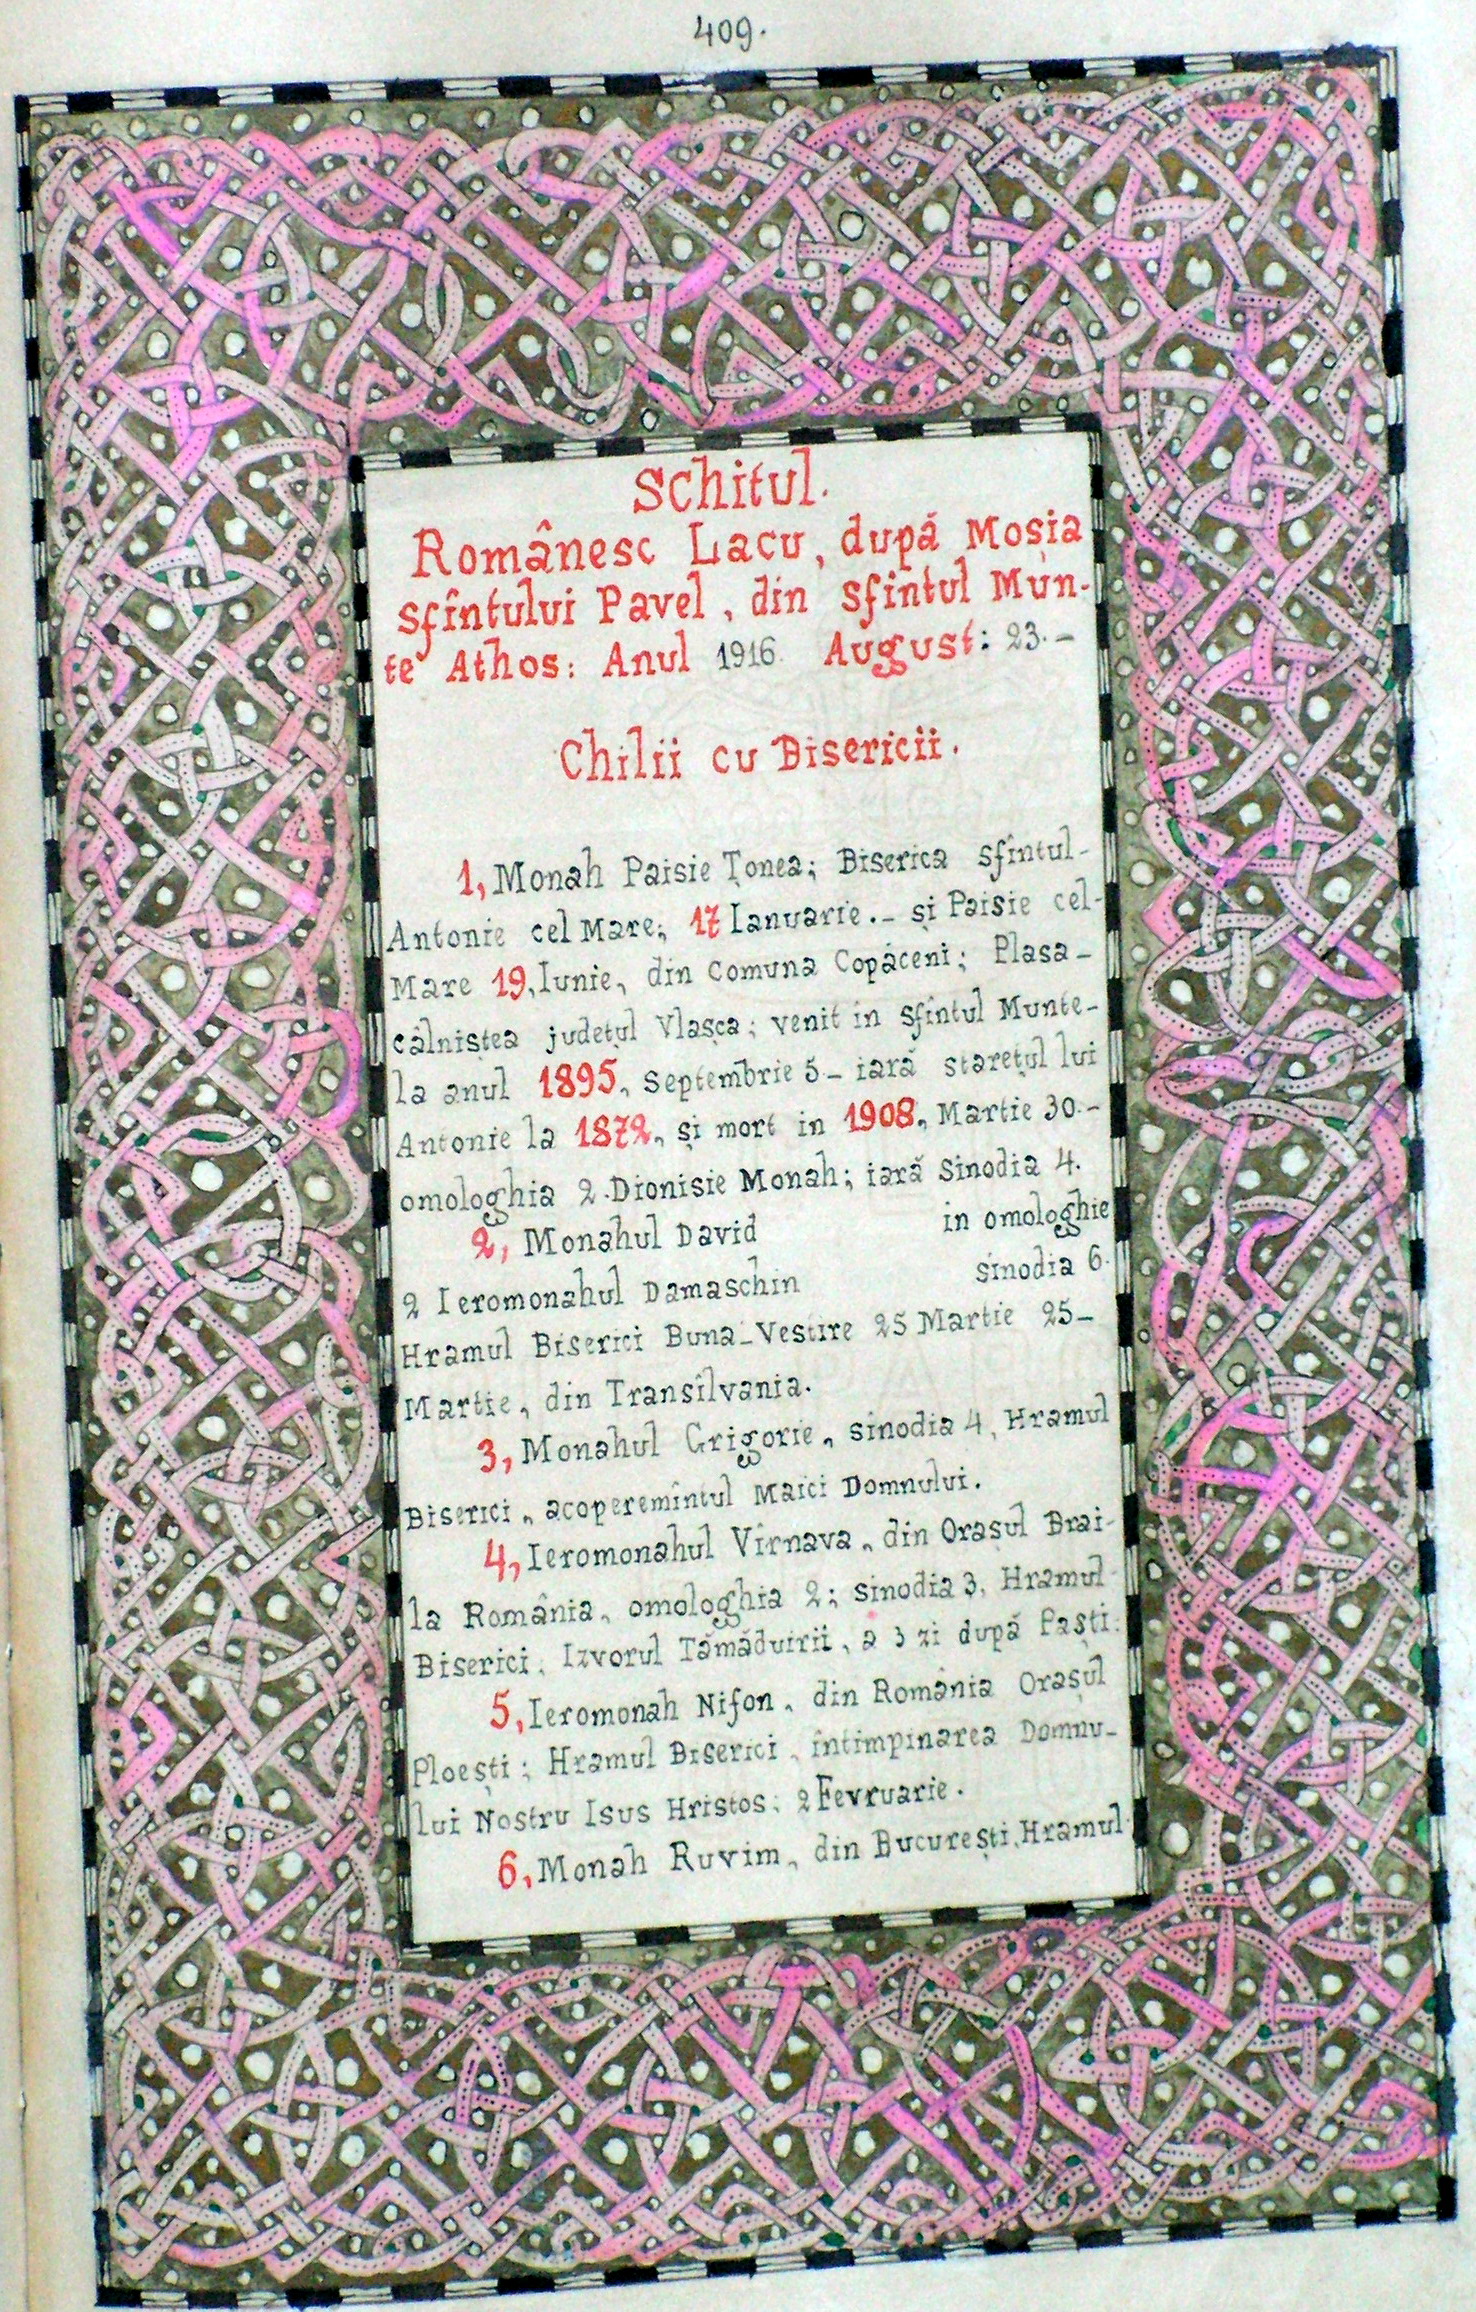 409.
Schitul.
Românesc Lacu, după Moșia
sfîntului Pavel, din sfîntul Mun-
te Athos: Anul 1916. August: 23.-
Chilii cu Bisericii.
1, Monah Paisie Țonea; Biserica sfîntul-
Antonie cel Mare; 17 Ianuarie.- și Paisie cel-
Mare 19, Iunie, din Comuna Copăceni; Plasa-
câlniștea județul Vlașca; venit in sfîntul Munte-
la anul 1895, Septembrie 5- iară starețul lui
Antonie la 1872, și mort in 1908, Martie 30.-
omologhia 2. Dionisie Monah; iară Sinodia 4.
2, Monahul David in omologhie
2 Ieromonahul Damaschin sinodia 6.
Hramul Biserici Buna-Vestire 25 Martie 25-
Martie, din Transilvania.
3, Monahul Grigorie, sinodia 4, Hramul
Biserici, acoperemîntul Maici Domnului.
4, Ieromonahul Vîrnava, din Orașul Brai-
la România, omologhia 2; sinodia 3, Hramul
Biserici, Izvorul Tămăduirii, a 3 zi după Paști:
5, Ieromonah Nifon, din România Orașul
Ploești; Hramul Biserici, întimpinarea Domnu-
lui Nostru Isus Hristos; 2 Fevruarie.
6, Monah Ruvim, din București, Hramul